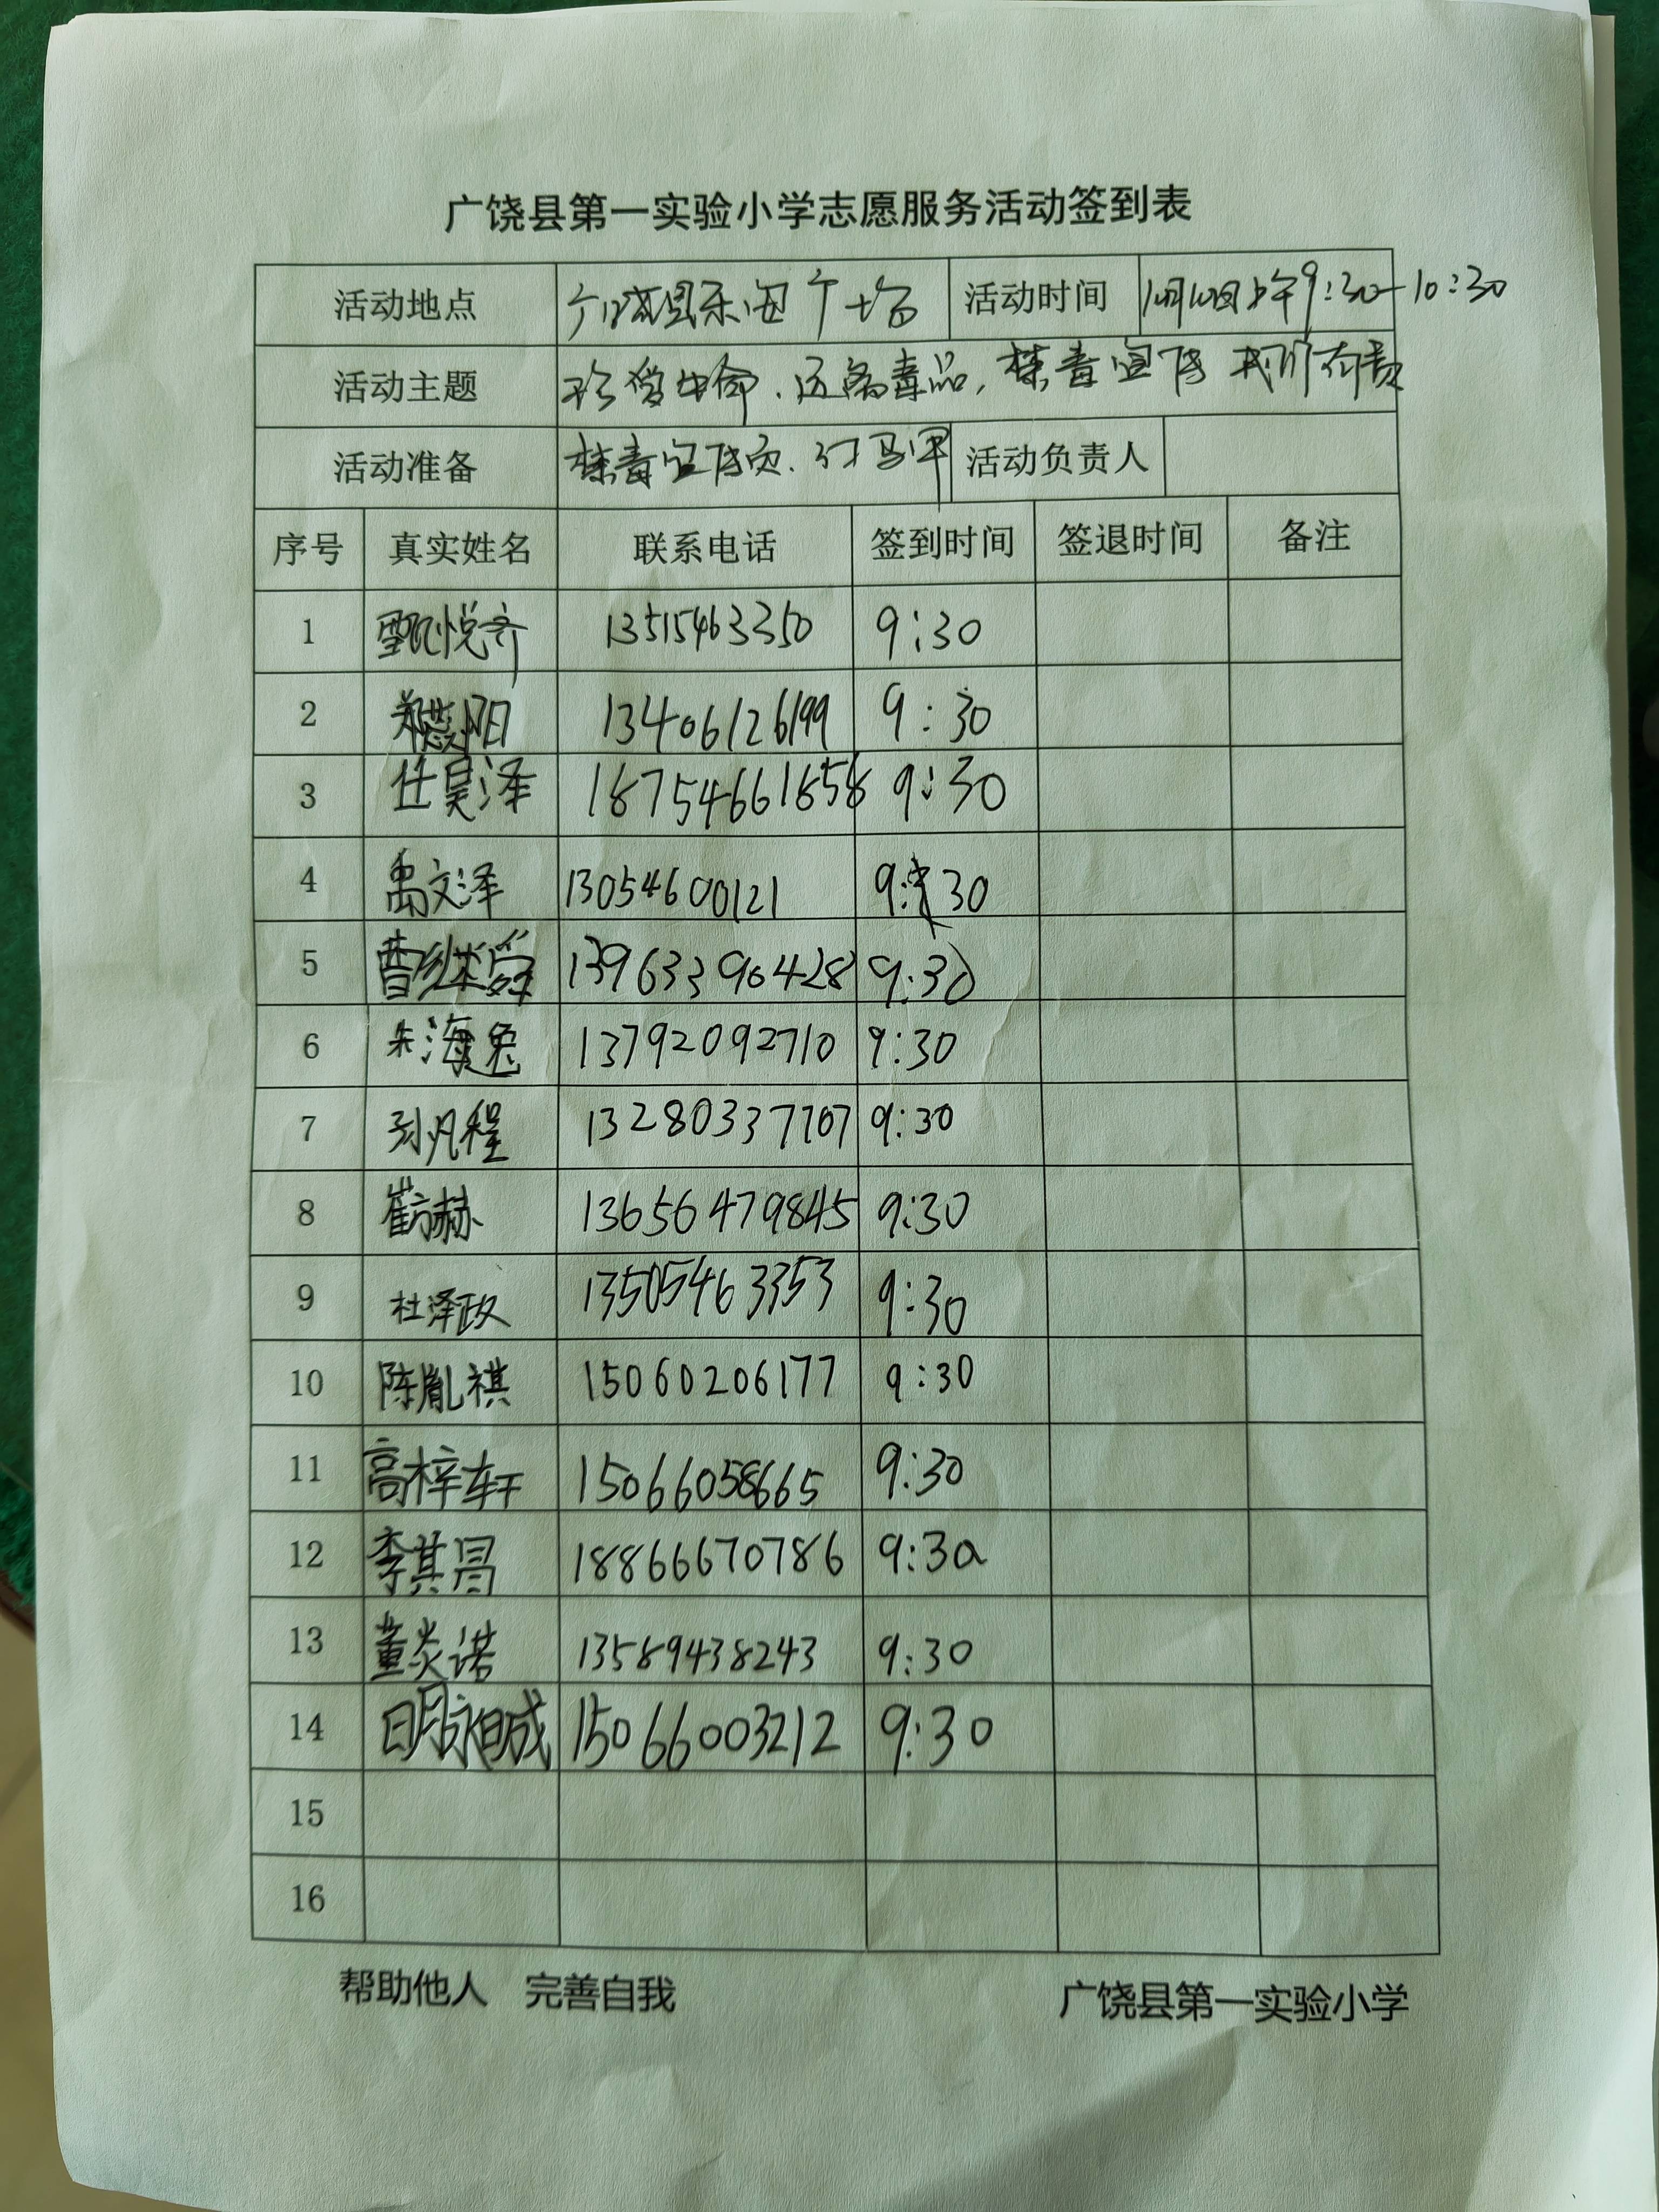 广饶县第一实验小学志愿服务活动签到表
活动地点 广饶县乐安广场 活动时间 上午9:30-10:30
活动主题 珍爱生命、远离毒品,禁毒宣传 我们有责
活动准备 禁毒宣传页、红马甲 活动负责人
序号 真实姓名 联系电话 签到时间 签退时间 备注
1 甄悦齐 13515463350 9:30
2 阳 13406126199 9:30
3 任昊泽 18754661658 9:30
4 禹文泽 13054600121 9:30
5 曹继舜 13963390428 9:30
6 朱海逸 13792092710 9:30
7 孙凡程 13280337707 9:30
8 崔方赫 13656479845 9:30
9 杜泽政 13505463353 9:30
10 陈胤祺 15060206177 9:30
11 高梓轩 15066058665 9:30
12 李其昌 18866670786 9:30
13 董炎诺 13589438243 9:30
14 15066003212 9:30
15
16
帮助他人 完善自我 广饶县第一实验小学